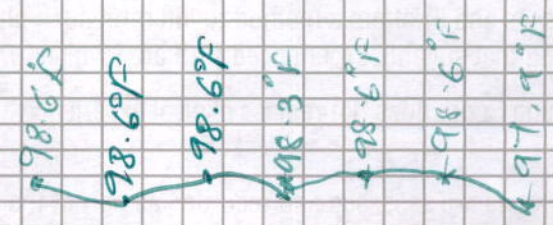 98.6°F
98.6°F
98.6°F
98.3°F
98.6°F
98.6°F
97.9°F